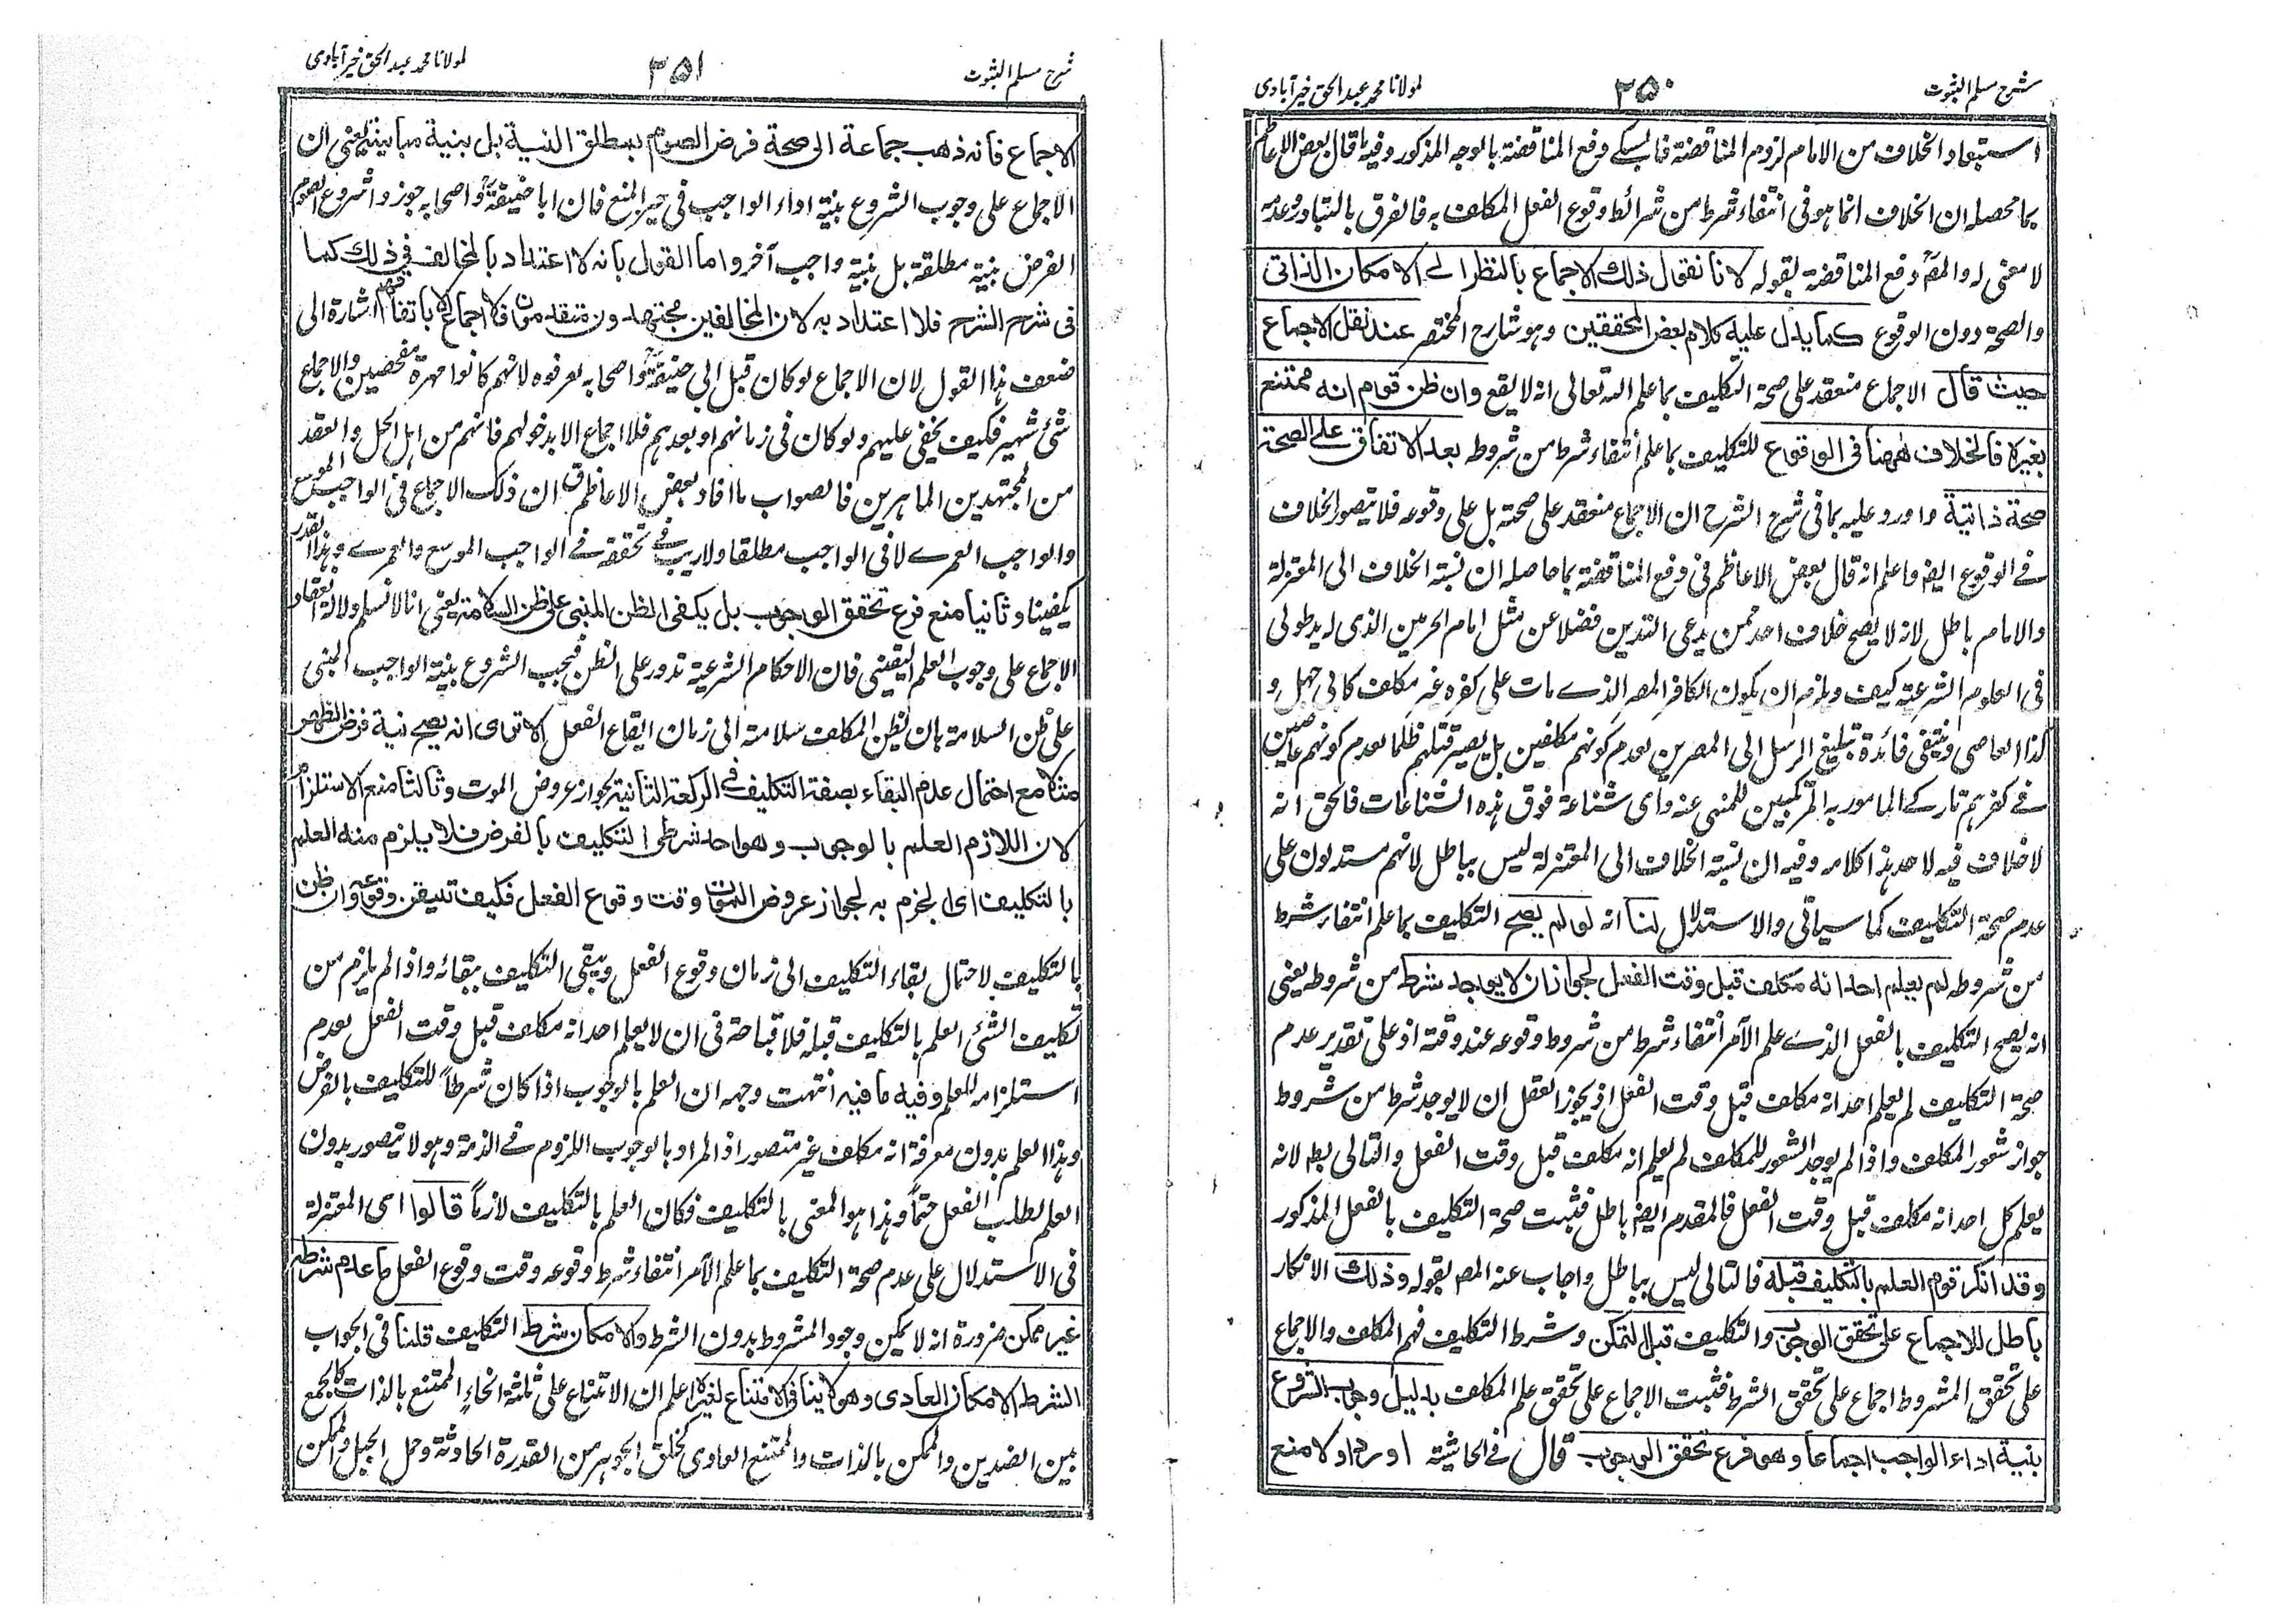 شرح مسلم الثبوت ٣٥٠ لمولانا محمد عبد الحق خیرآبادی
استبعاد الخلاف من الامام لزوم المناقضة فالسبکے دفع المناقضة بالوجه المذکور وفیه ما قال بعض الاعاظم
بما محصله ان الخلاف انما هو فی انتفاء شرط من شرائط وقوع الفعل المکلف به فالفرق بالتبادر وعدمه
لا معنی له والمصؒ دفع المناقضة بقوله لانا نقول ذلك الاجماع بالنظر الے الامکان الذاتی
والصحة دون الوقوع کما یدل علیه کلام بعض المحققین وهو شارح المختصر عند نقل الاجماع
حیث قال الاجماع منعقد علی صحة التکلیف بما علم الله تعالی انه لا یقع وان ظن قوم انه ممتنع
بغیره فالخلاف ههنا فی الوقوع للتکلیف بما علم انتفاء شرط من شروطه بعد الاتفاق علی الصحة
صحة ذاتیة واورد علیه بما فی شرح الشرح ان الاجماع منعقد علی صحته بل علی وقوعه فلا یتصور الخلاف
فے الوقوع ایضا واعلم انه قال بعض الاعاظم فی دفع المناقضة بما حاصله ان نسبة الخلاف الی المعتزلة
والامام باطل لانه لا یصح خلاف احد ممن یدعی التدین فضلا عن مثل امام الحرمین الذی له ید طولی
فی العلوم الشرعیة کیف ویلزم ان یکون الکافر المصر الذے مات علی کفره غیر مکلف کابی جهل و
کذا العاصی وینتفی فائدة تبلیغ الرسل الی المصرین لعدم کونهم مکلفین بل یصیر قتلهم ظلما لعدم کونهم عاصین
فے کفرهم تارکے المامور به المرتکبین للمنهی عنه وای شناعة فوق هذه الشناعات فالحق انه
لا خلاف فیه لاحد هذا کلامه وفیه ان نسبة الخلاف الی المعتزلة لیس بباطل لانهم مستدلون علی
عدم صحة التکلیف کما سیاتی والاستدلال لنا انه لو لم یصح التکلیف بما علم انتفاء شرط
من شروطه لم یعلم احد انه مکلف قبل وقت الفعل لجواز ان لا یوجد شرط من شروطه یعنی
انه یصح التکلیف بالفعل الذے علم الآمر انتفاء شرط من شروط وقوعه عند وقته اذ علی تقدیر عدم
صحة التکلیف لم یعلم احد انه مکلف قبل وقت الفعل اذ یجوز العقل ان لا یوجد شرط من شروط
جواز شعور المکلف واذا لم یوجد الشعور للمکلف لم یعلم انه مکلف قبل وقت الفعل والتالی بط لانه
یعلم کل احد انه مکلف قبل وقت الفعل فالمقدم ایضا باطل فثبت صحة التکلیف بالفعل المذکور
وقد انکر قوم العلم بالتکلیف قبله فالتالی لیس بباطل واجاب عنه المصر بقوله وذلك الانکار
باطل للاجماع علی تحقق الوجوب والتکلیف قبل التمکن وشرط التکلیف فهم المکلف والاجماع
علی تحقق المشروط اجماع علی تحقق الشرط فثبت الاجماع علی تحقق علم المکلف بدلیل وجوب الشروع
بنیة اداء الواجب اجماعا وهو فرع تحقق الوجوب قال فے الحاشیة اورد اولا منع
شرح مسلم الثبوت ٣٥١ لمولانا محمد عبد الحق خیرآبادی
الاجماع فانه ذهب جماعة الی صحة فرض الصوم بمطلق النیة بل بنیة مباینة یعنی ان
الاجماع علی وجوب الشروع بنیة اداء الواجب فی حیز المنع فان ابا حنیفةؒ واصحابه جوزوا شروع الصوم
الفرض بنیة مطلقة بل بنیة واجب آخر واما القول بانه لا اعتداد بالمخالف فی ذلك کما
فی شرح الشرح فلا اعتداد به لان المخالفین مجتهدون متقدمون فلا اجماع الا باتفاقهم اشارة الی
ضعف هذا القول لان الاجماع لو کان قبل ابی حنیفةؒ واصحابه لعرفوه لانهم کانوا مهرة متفحصین والاجماع
شئ شهیر فکیف یخفی علیهم ولو کان فی زمانهم او بعدهم فلا اجماع الا بدخولهم فانهم من اهل الحل والعقد
من المجتهدین الماهرین فالصواب ما افاد بعض الاعاظم ق ان ذلک الاجماع فی الواجب الموسع
والواجب العمرے لا فی الواجب مطلقا ولا ریب فے تحققه فے الواجب الموسع والعمرے وبهذا القدر
یکفینا وثانیا منع فرع تحقق الوجوب بل یکفی الظن المبنی علی ظن السلامة یعنی انا لا نسلم دلالة انعقاد
الاجماع علی وجوب العلم الیقینی فان الاحکام الشرعیة تدور علی الظن فیجب الشروع بنیة الواجب المبنی
علی ظن السلامة بان یظن المکلف سلامته الی زمان ایقاع الفعل الا تری انه یصح نیة فرض الظهر
مثلا مع احتمال عدم البقاء بصفة التکلیف فے الرکعة الثانیة لجواز عروض الموت وثالثا منع الاستلزام
لان اللازم العلم بالوجوب وهو احد شرطی التکلیف بالفرض فلا یلزم منه العلم
بالتکلیف ای الجزم به لجواز عروض الموت وقت وقوع الفعل فکیف تیقن وقوعه وان ظن
بالتکلیف لاحتمال بقاء التکلیف الی زمان وقوع الفعل ویبقی التکلیف ببقائه واذا لم یلزم من
تکلیف الشئ العلم بالتکلیف قبله فلا قباحة فی ان لا یعلم احد انه مکلف قبل وقت الفعل لعدم
استلزامه للعلم وفیه ما فیه انتهت وجهه ان العلم بالوجوب اذا کان شرطاً للتکلیف بالفرض
وهذا العلم بدون معرفة انه مکلف غیر متصور اذ المراد بالوجوب اللزوم فے الذمة وهو لا یتصور بدون
العلم لطلب الفعل حتماً وهذا هو المعنی بالتکلیف فکان العلم بالتکلیف لازماً قالوا ای المعتزلة
فی الاستدلال علی عدم صحة التکلیف بما علم الآمر انتفاء شرط وقوعه وقت وقوع الفعل ما عدم شرطه
غیر ممکن ضرورة انه لا یمکن وجود المشروط بدون الشرط والامکان شرط التکلیف قلنا فی الجواب
الشرط الامکان العادی وهو لا ینافی الامتناع لغیره اعلم ان الامتناع علی ثلثة انحاءٍ الممتنع بالذات کالجمع
بین الضدین والممکن بالذات والممتنع العادی کخلق الجوهر من القدرة الحادثة وحمل الجبل والممکن